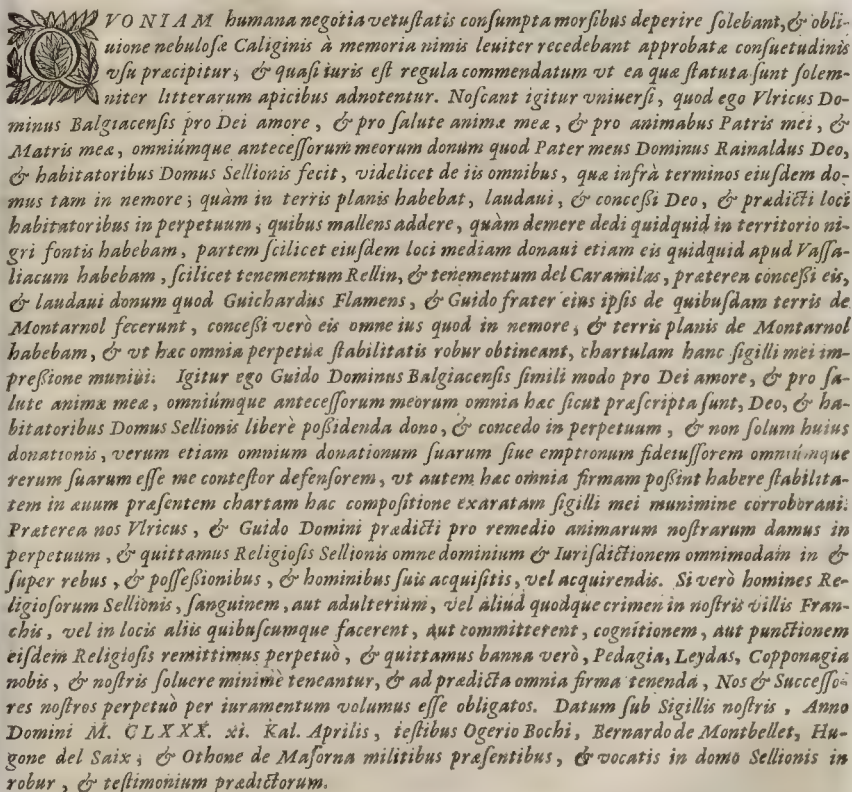 QVONIAM humana negotia vetuſtatis conſumpta morſibus deperire ſolebant, & obli-
uione nebuloſæ Caliginis à memoria nimis leuiter recedebant approbatæ conſuetudinis
vſu præcipitur; & quaſi iuris eſt regula commendatum vt ea quæ ſtatuta ſunt ſolem-
niter litterarum apicibus adnotentur. Noſcant igitur vniuerſi, quod ego Vlricus Do-
minus Balgiacenſis pro Dei amore, & pro ſalute animæ meæ, & pro animabus Patris mei, &
Matris meæ, omniúmque anteceſſorum meorum donum quod Pater meus Dominus Rainaldus Deo,
& habitatoribus Domus Sellionis fecit, videlicet de iis omnibus, quæ infrà terminos eiuſdem do-
mus tam in nemore; quàm in terris planis habebat, laudaui, & conceßi Deo, & prædicti loci
habitatoribus in perpetuum; quibus mallens addere, quàm demere dedi quidquid in territorio ni-
gri fontis habebam, partem ſcilicet eiuſdem loci mediam donaui etiam eis quidquid apud Vaſſa-
liacum habebam, ſcilicet tenementum Rellin, & tenementum del Caramilas, præterea conceßi eis,
& laudaui donum quod Guichardus Flamens, & Guido frater eius ipſis de quibuſdam terris de
Montarnol fecerunt, conceßi verò eis omne ius quod in nemore, & terris planis de Montarnol
habebam, & vt hæc omnia perpetuæ ſtabilitatis robur obtineant, chartulam hanc ſigilli mei im-
preßione muniui. Igitur ego Guido Dominus Balgiacenſis ſimili modo pro Dei amore, & pro ſa-
lute animæ meæ, omniúmque anteceſſorum meorum omnia hæc ſicut præſcripta ſunt, Deo, & ha-
bitatoribus Domus Sellionis liberè poßidenda dono, & concedo in perpetuum, & non ſolum huius
donationis, verum etiam omnium donationum ſuarum ſiue emptionum fideiuſſorem omniúmque
rerum ſuarum eſſe me conteſtor defenſorem, vt autem hæc omnia firmam poßint habere ſtabilita-
tem in æuum præſentem chartam hac compoſitione exaratam ſigilli mei munimine corroboraui.
Præterea nos Vlricus, & Guido Domini prædicti pro remedio animarum noſtrarum damus in
perpetuum, & quittamus Religioſis Sellionis omne dominium & Iuriſdictionem omnimodam in &
ſuper rebus, & poſſeßionibus, & hominibus ſuis acquiſitis, vel acquirendis. Si verò homines Re-
ligioſorum Sellionis, ſanguinem, aut adulterium, vel aliud quodque crimen in noſtris villis Fran-
chis, vel in locis aliis quibuſcumque facerent, aut committerent, cognitionem, aut punctionem
eiſdem Religioſis remittimus perpetuò, & quittamus banna verò, Pedagia, Leydas, Copponagia
nobis, & noſtris ſoluere minimè teneantur, & ad prædicta omnia firma tenenda, Nos & Succeſſo-
res noſtros perpetuò per iuramentum volumus eſſe obligatos. Datum ſub Sigillis noſtris, Anno
Domini M. CLXXX. xi. Kal. Aprilis, teſtibus Ogerio Bochi, Bernardo de Montbellet, Hu-
gone del Saix; & Othone de Maſorna militibus præſentibus, & vocatis in domo Sellionis in
robur, & teſtimonium prædictorum.